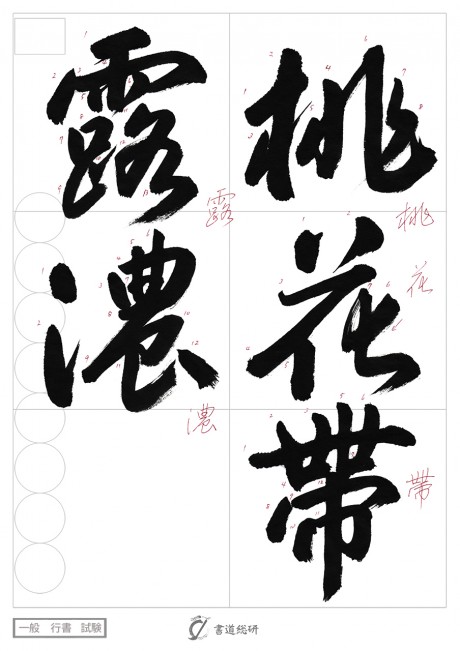 桃花帶
露濃
桃
花
帶
露
濃
一般 行書 試験
書道総研